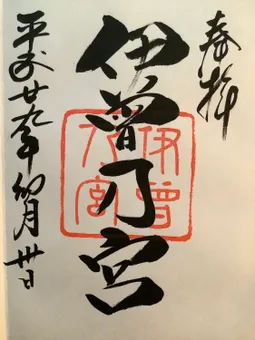 奉拝
伊曽乃宮
平成廿九年卯月卅日
伊曽乃宮